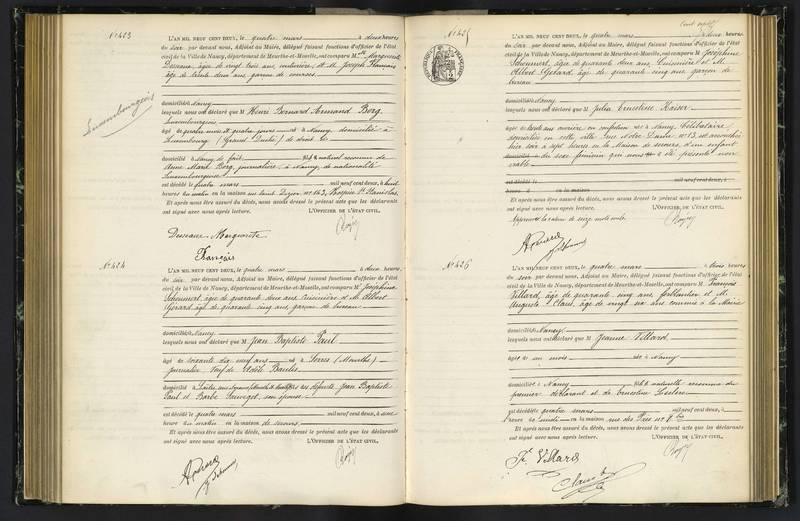 N° 423
Luxembourgeois
L'AN MIL NEUF CENT DEUX, le quatre mars à deux heures
du soir par devant nous, Adjoint au Maire, délégué faisant fonctions d'officier de l'état
civil de la Ville de Nancy, département de Meurthe-et-Moselle, ont comparu M Marguerite
âgée de vingt trois ans, et M. Joseph
âgé de trente deux ans, garçon de courses
domiciliés à Nancy
lesquels nous ont déclaré que M Henri Bernard Armand Berg,
Luxembourgeois
âgé de quatre mois et quatre jours né à Nancy, domicilié à
Luxembourg (Grand Duché) de droit et
domicilié à Nancy de fait, fils naturel reconnu de
Anne Marie Berg, journalière, à Nancy, de nationalité
Luxembourgeoise
est décédé le quatre mars mil neuf cent deux, à huit
heures du matin en la maison rue Saint Dizier, n° 163, Hospice St Stanislas
Et après nous être assuré du décès, nous avons dressé le présent acte que les déclarants
ont signé avec nous après lecture. L'OFFICIER DE L'ÉTAT CIVIL,
Marguerite
François
N° 424
L'AN MIL NEUF CENT DEUX, le quatre mars à deux heures
du soir par devant nous, Adjoint au Maire, délégué faisant fonctions d'officier de l'état
civil de la Ville de Nancy, département de Meurthe-et-Moselle, ont comparu M Joséphine
âgée de quarante deux ans Cuisinière et M. Albert
âgé de quarante cinq ans, garçon de bureau
domiciliés à Nancy
lesquels nous ont déclaré que M Jean Baptiste Paul
âgé de soixante dix neuf ans né à (Meurthe)
journalier, veuf de
domicilié à fils des défunts Jean Baptiste
Paul et Barbe son épouse
est décédé le quatre mars mil neuf cent deux, à onze
heures du matin en la maison de secours
Et après nous être assuré du décès, nous avons dressé le présent acte que les déclarants
ont signé avec nous après lecture. L'OFFICIER DE L'ÉTAT CIVIL,
N° 425
L'AN MIL NEUF CENT DEUX, le quatre mars à deux heures
du soir par devant nous, Adjoint au Maire, délégué faisant fonctions d'officier de l'état
civil de la Ville de Nancy, département de Meurthe-et-Moselle, ont comparu M Joséphine
âgée de quarante deux ans, Cuisinière et M.
Albert âgé de quarante cinq ans garçon de
bureau
domiciliés à Nancy
lesquels nous ont déclaré que M Julia Ernestine Kaiser
âgée de trente ans ouvrière en confection née à Nancy Célibataire,
domiciliée en cette ville rue Notre Dame n° 13, est accouchée
hier soir à sept heures en la Maison de secours, d'un enfant
domicilié du sexe féminin que nous a été présenté non
viable
est décédé le mil neuf cent deux, à
heures d en la maison
Et après nous être assuré du décès, nous avons dressé le présent acte que les déclarants
ont signé avec nous après lecture. L'OFFICIER DE L'ÉTAT CIVIL,
Approuvé la rature de seize mots nuls
N° 426
L'AN MIL NEUF CENT DEUX, le quatre mars à trois heures
du soir par devant nous, Adjoint au Maire, délégué faisant fonctions d'officier de l'état
civil de la Ville de Nancy, département de Meurthe-et-Moselle, ont comparu M François
Villard, âgé de quarante cinq ans, ferblantier et M.
Auguste Claud, âgé de vingt six ans commis à la Mairie
domiciliés à Nancy
lesquels nous ont déclaré que M Jeanne Villard
âgée de un mois née à Nancy
domiciliée à Nancy fille naturelle reconnue du
premier déclarant et de Ernestine
est décédée le quatre mars mil neuf cent deux, à
heures en la maison rue des n° 9 bis
Et après nous être assuré du décès, nous avons dressé le présent acte que les déclarants
ont signé avec nous après lecture. L'OFFICIER DE L'ÉTAT CIVIL,
Fs Villard
Claud